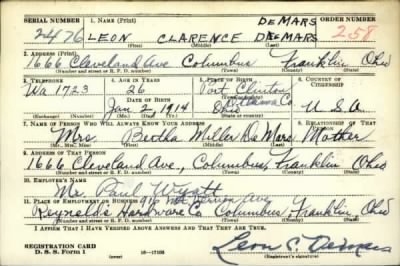 SERIAL NUMBER 1. NAME (Print) ORDER NUMBER
DeMARS
2476 LEON CLARENCE DeMARS 258
(First) (Middle) (Last)
2. ADDRESS (Print)
1666 Cleveland Ave Columbus Franklin Ohio
(Number and street or R. F. D. number) (Town) (County) (State)
3. TELEPHONE 4. AGE IN YEARS 5. PLACE OF BIRTH 6. COUNTRY OF CITIZENSHIP
Wa 1723 26 Port Clinton
DATE OF BIRTH Ottawa Co
Jan 2, 1914 Ohio U S A
(Exchange) (Number) (Mo.) (Day) (Yr.) (State or country)
7. NAME OF PERSON WHO WILL ALWAYS KNOW YOUR ADDRESS 8. RELATIONSHIP OF THAT PERSON
Mrs. Bertha Miller DeMars Mother
(Mr., Mrs., Miss) (First) (Middle) (Last)
9. ADDRESS OF THAT PERSON
1666 Cleveland Ave, Columbus, Franklin Ohio
(Number and street or R. F. D. number) (Town) (County) (State)
10. EMPLOYER'S NAME
Mr. Paul Wyatt
11. PLACE OF EMPLOYMENT OR BUSINESS 916 Mt Vernon Ave
Reynolds Hardware Co Columbus, Franklin Ohio
(Number and street or R. F. D. number) (Town) (County) (State)
I AFFIRM THAT I HAVE VERIFIED ABOVE ANSWERS AND THAT THEY ARE TRUE.
REGISTRATION CARD
D. S. S. Form 1 (over) Leon C DeMars
(Registrant's signature)